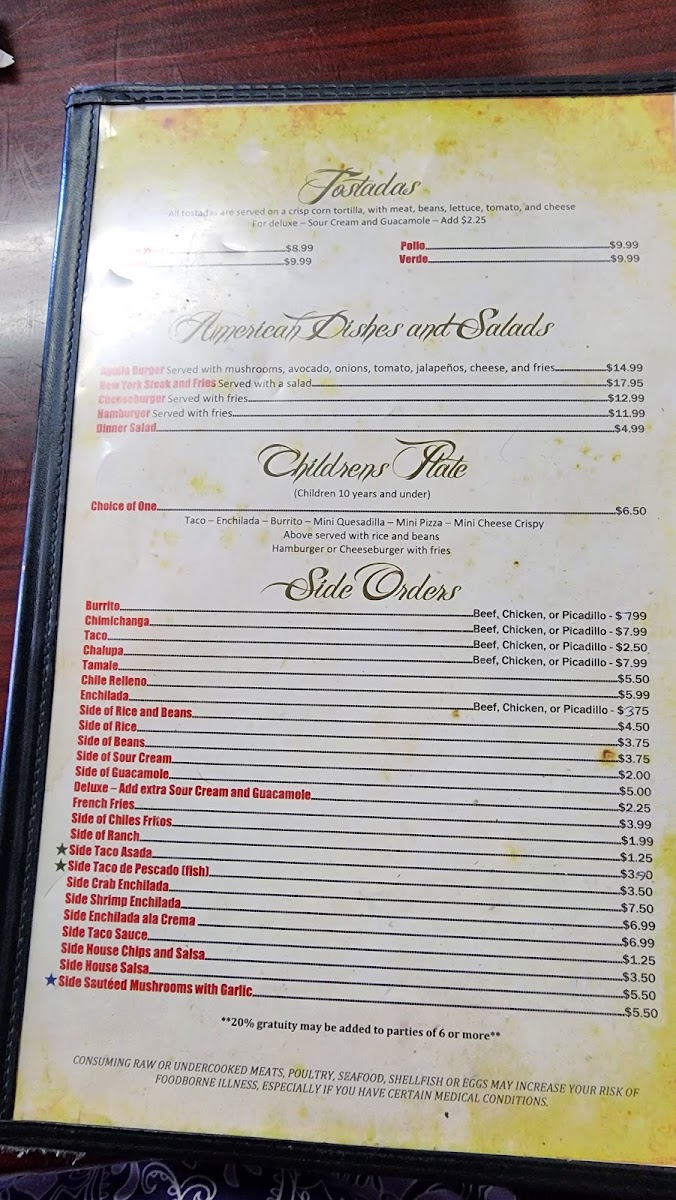 Tostadas
All tostadas are served on a crisp corn tortilla, with meat, beans, lettuce, tomato, and cheese
For deluxe – Sour Cream and Guacamole – Add $2.25
$8.99 Pollo $9.99
$9.99 Verde $9.99
American Dishes and Salads
Aguila Burger Served with mushrooms, avocado, onions, tomato, jalapeños, cheese, and fries $14.99
New York Steak and Fries Served with a salad $17.95
Cheeseburger Served with fries $12.99
Hamburger Served with fries $11.99
Dinner Salad $4.99
Childrens Plate
(Children 10 years and under)
Choice of One $6.50
Taco – Enchilada – Burrito – Mini Quesadilla – Mini Pizza – Mini Cheese Crispy
Above served with rice and beans
Hamburger or Cheeseburger with fries
Side Orders
Burrito Beef, Chicken, or Picadillo - $ 799
Chimichanga Beef, Chicken, or Picadillo - $7.99
Taco Beef, Chicken, or Picadillo - $2.50
Chalupa Beef, Chicken, or Picadillo - $7.99
Tamale $5.50
Chile Relleno $5.99
Enchilada Beef, Chicken, or Picadillo - $375
Side of Rice and Beans $4.50
Side of Rice $3.75
Side of Beans $3.75
Side of Sour Cream $2.00
Side of Guacamole $5.00
Deluxe – Add extra Sour Cream and Guacamole $2.25
French Fries $3.99
Side of Chiles Fritos $1.99
Side of Ranch $1.25
★Side Taco Asada $3.50
★Side Taco de Pescado (fish) $3.50
Side Crab Enchilada $7.50
Side Shrimp Enchilada $6.99
Side Enchilada ala Crema $6.99
Side Taco Sauce $1.25
Side House Chips and Salsa $3.50
Side House Salsa $5.50
★Side Sautéed Mushrooms with Garlic $5.50
**20% gratuity may be added to parties of 6 or more**
CONSUMING RAW OR UNDERCOOKED MEATS, POULTRY, SEAFOOD, SHELLFISH OR EGGS MAY INCREASE YOUR RISK OF
FOODBORNE ILLNESS, ESPECIALLY IF YOU HAVE CERTAIN MEDICAL CONDITIONS.